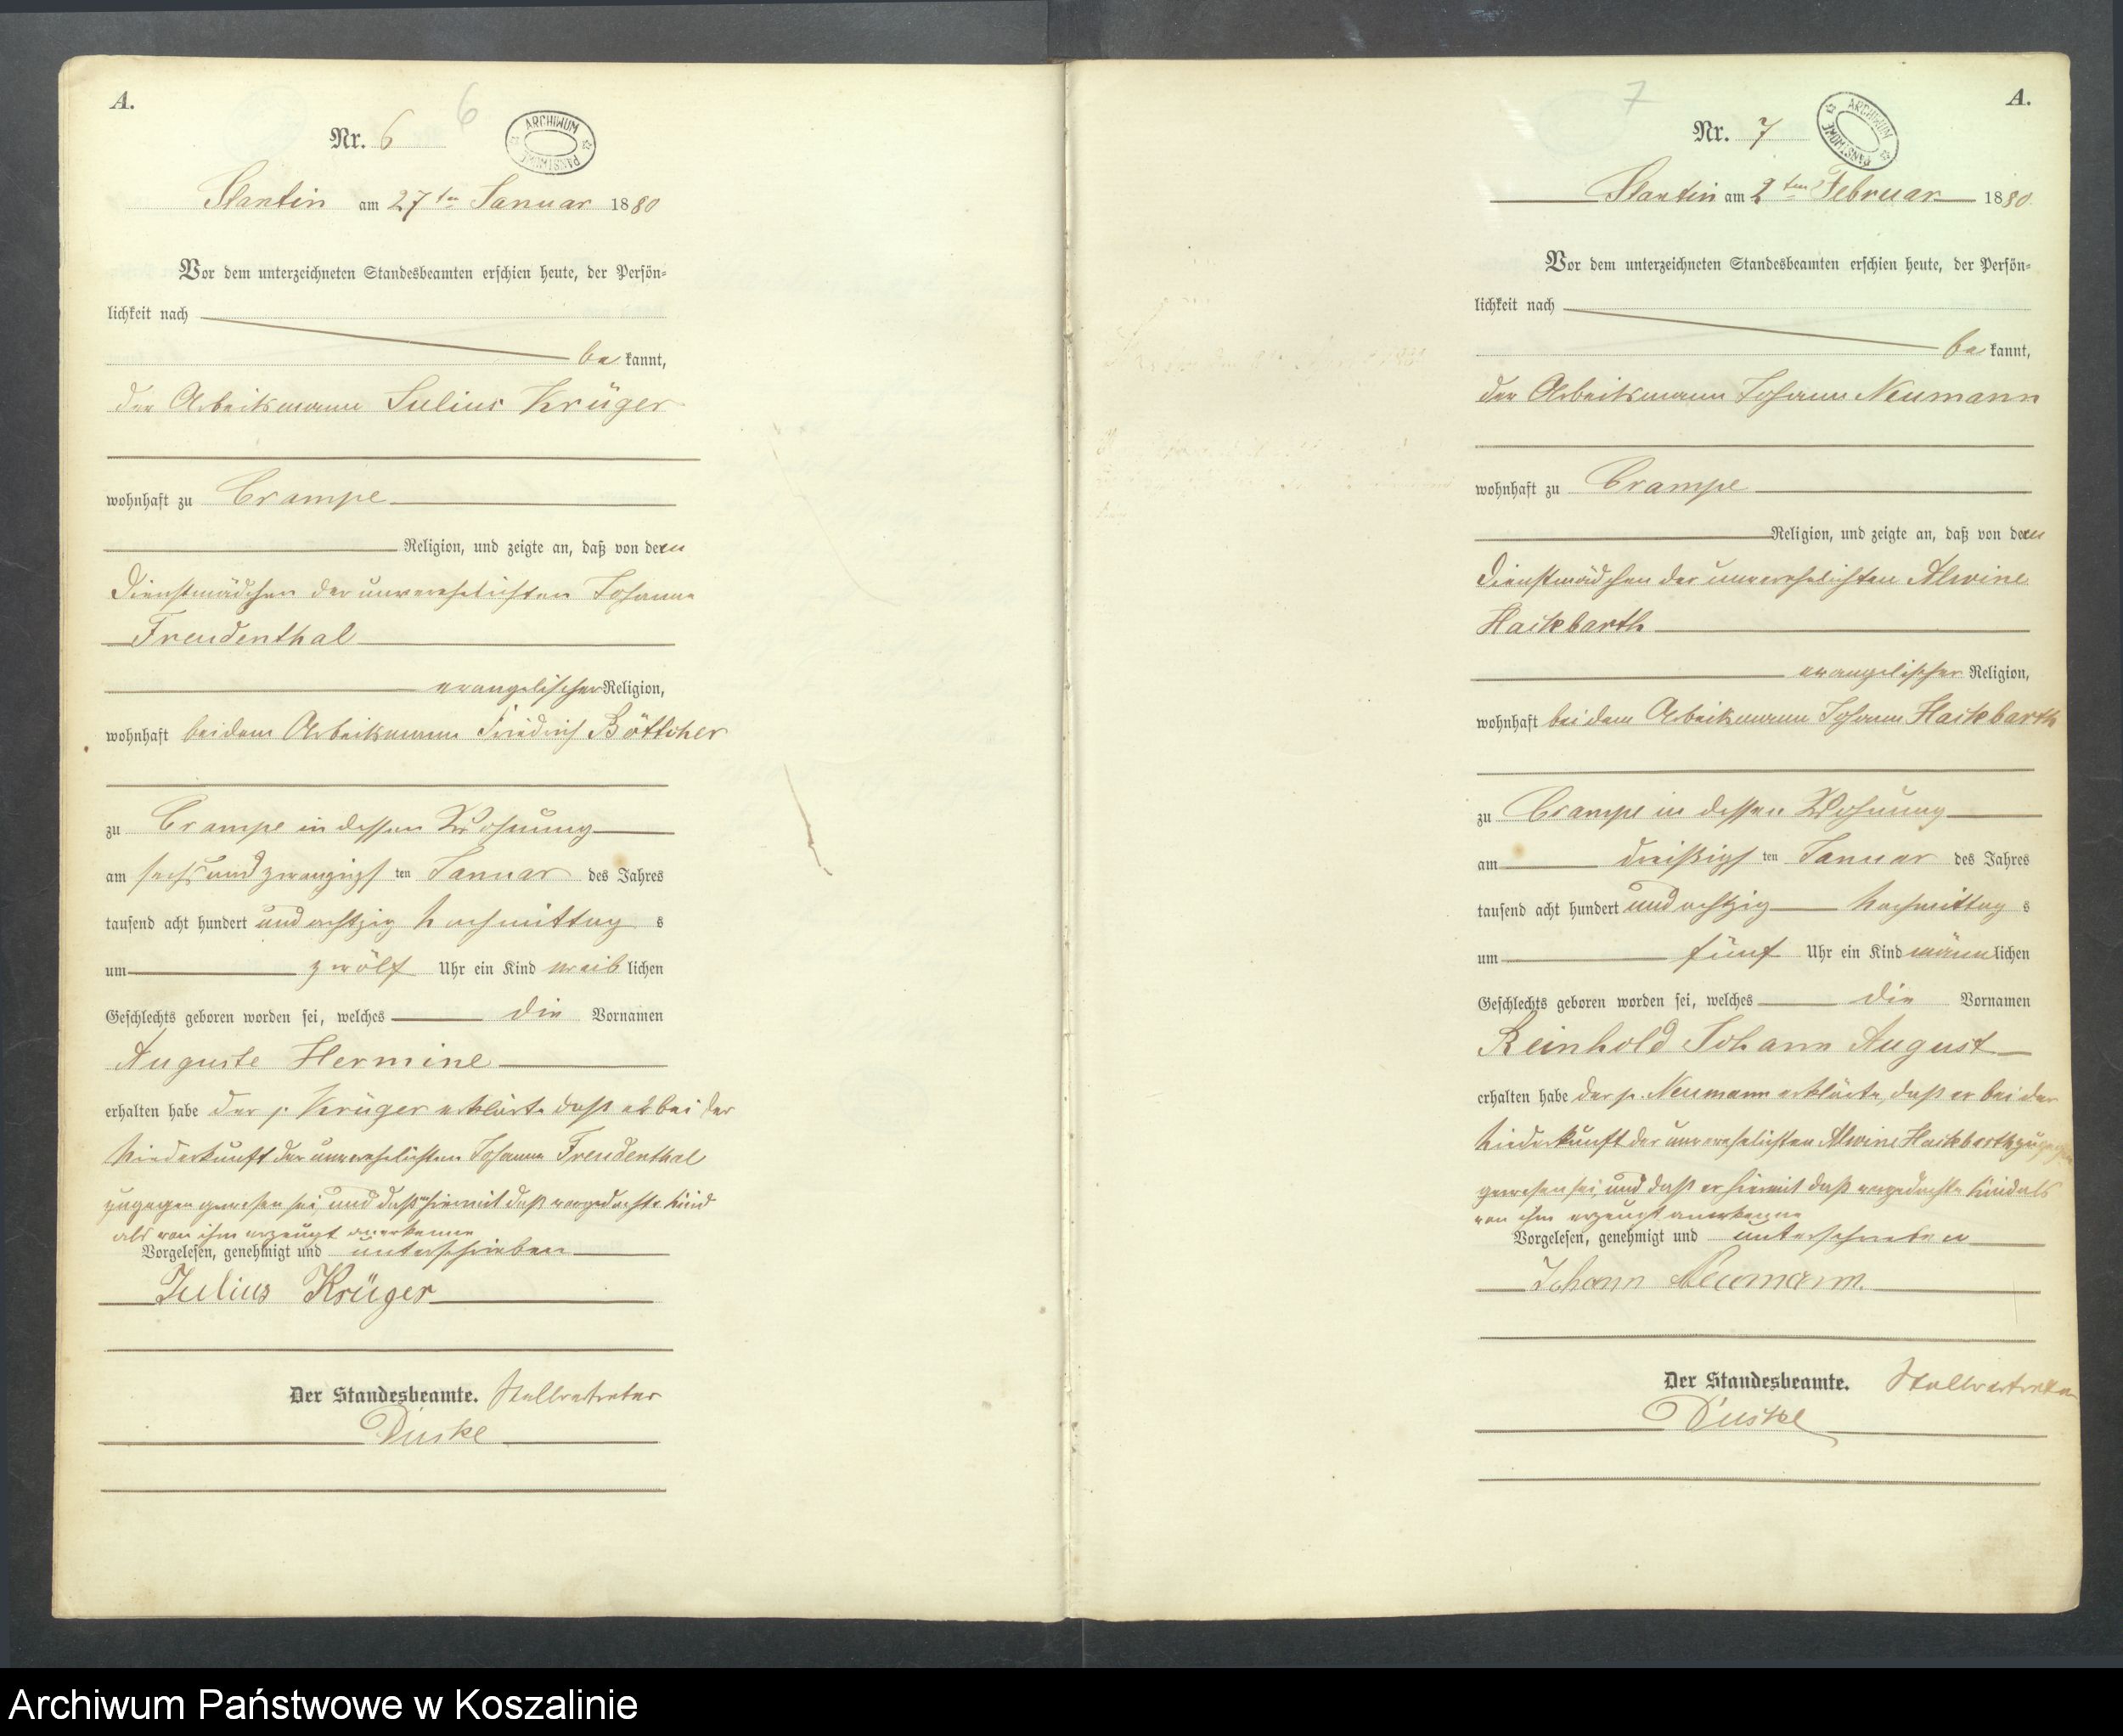 A.
6
Nr. 6
ARCHIWUM PAŃSTWOWE
Stantin am 27ten Januar 1880
Vor dem unterzeichneten Standesbeamten erschien heute, der Persön-
lichkeit nach
be kannt,
der Arbeitsmann Julius Krüger
wohnhaft zu Crampe
Religion, und zeigte an, daß von dem
Dienstmädchen der unverehelichten Johanne
Freudenthal
evangelischer Religion,
wohnhaft bei dem Arbeitsmann Friedrich Böttcher
zu Crampe in dessen Wohnung
am sechsundzwanzigsten Januar des Jahres
tausend acht hundert und achtzig Nachmittag s
um zwölf Uhr ein Kind weib lichen
Geschlechts geboren worden sei, welches die Vornamen
Auguste Hermine
erhalten habe der p. Krüger erklärte daß er bei der
Niederkunft der unverehelichten Johanne Freudenthal
zugegen gewesen sei und daß er hiermit daß vorgedachte Kind
als von ihm erzeugt anerkenne
Vorgelesen, genehmigt und unterschrieben
Julius Krüger
Der Standesbeamte. Stellvertreter
Duske
A.
7
Nr. 7
ARCHIWUM PAŃSTWOWE
Stantin am 2ten Februar 1880
Vor dem unterzeichneten Standesbeamten erschien heute, der Persön-
lichkeit nach
be kannt,
der Arbeitsmann Johann Neumann
wohnhaft zu Crampe
Religion, und zeigte an, daß von dem
Dienstmädchen der unverehelichten Alwine
Hackbarth
evangelischer Religion,
wohnhaft bei dem Arbeitsmann Johann Hackbarth
zu Crampe in dessen Wohnung
am dreißigsten Januar des Jahres
tausend acht hundert und achtzig Nachmittag s
um fünf Uhr ein Kind männ lichen
Geschlechts geboren worden sei, welches die Vornamen
Reinhold Johann August
erhalten habe der p. Neumann erklärte, daß er bei der
Niederkunft der unverehelichten Alwine Hackbarth zugegen
gewesen sei, und daß er hiermit daß vorgedachte Kind als
von ihm erzeugt anerkenne
Vorgelesen, genehmigt und unterschrieben
Johann Neumann.
Der Standesbeamte. Stellvertreter
Duske
Archiwum Państwowe w Koszalinie